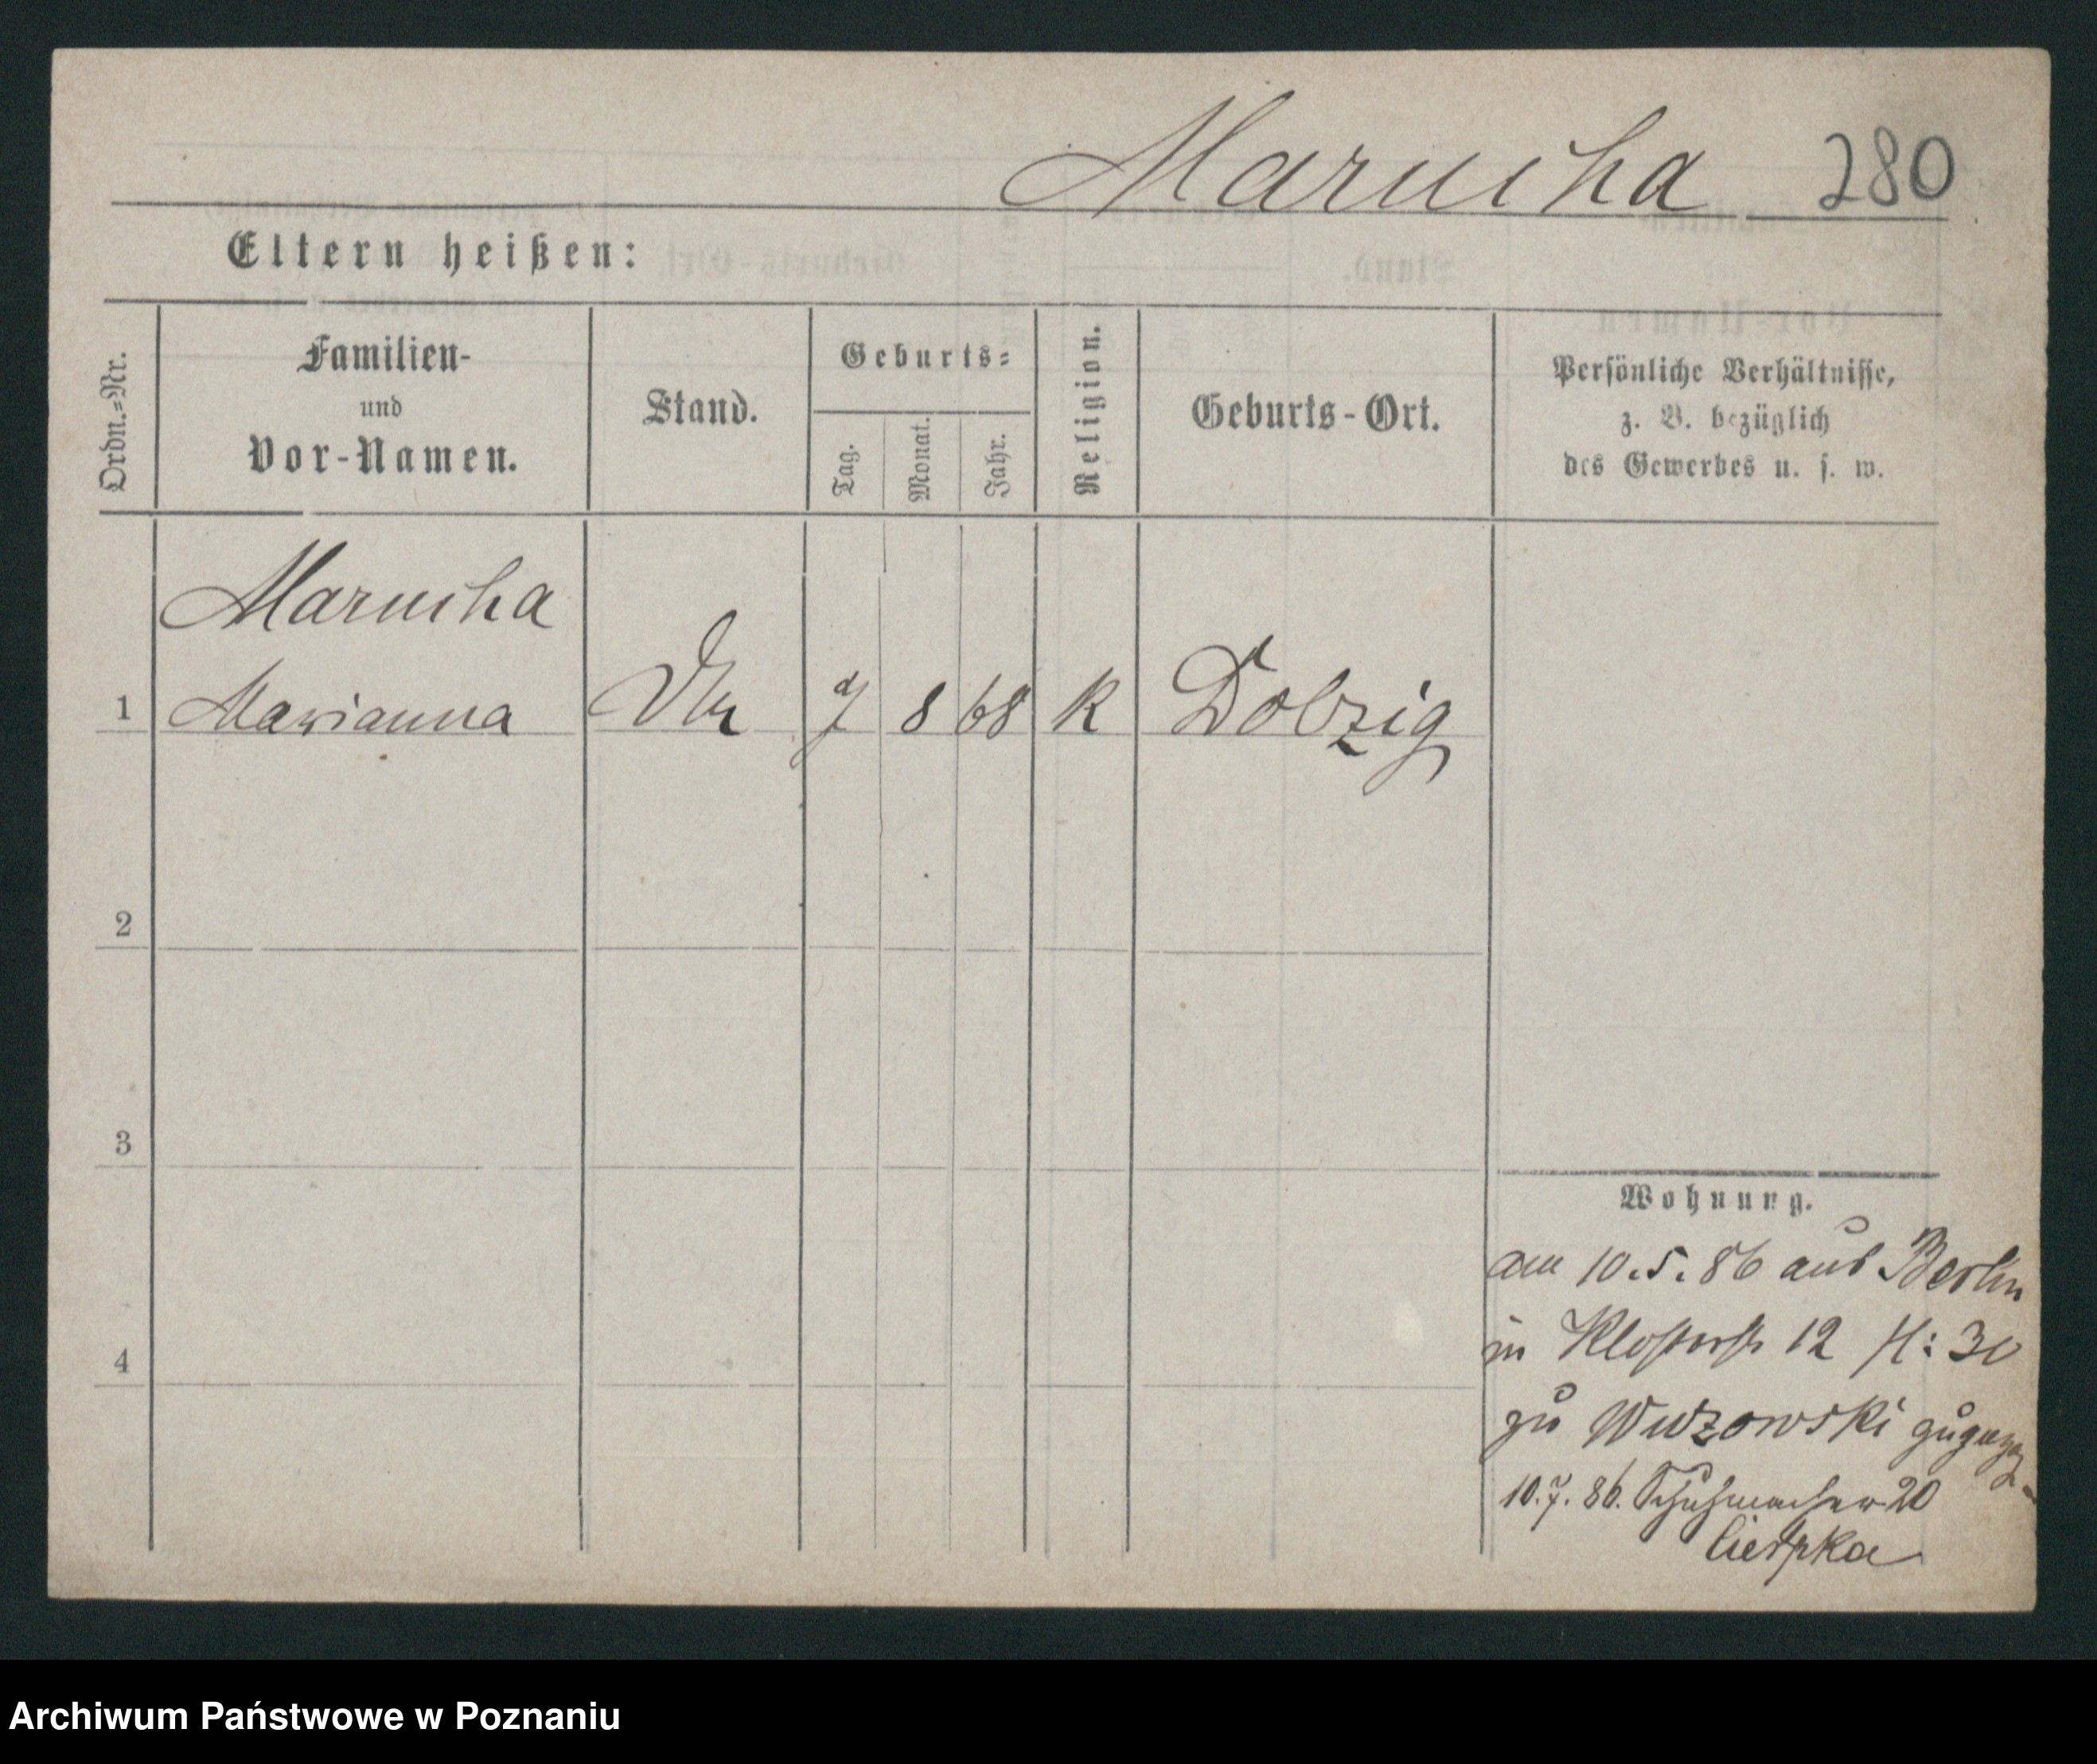 Marucha 280
Eltern heißen:
Ordn.=Nr.
Familien-
und
Vor-Namen.
Stand.
Geburts=
Tag.
Monat.
Jahr.
Religion.
Geburts-Ort.
Persönliche Verhältnisse,
z. B. bezüglich
des Gewerbes u. s. w.
Marucha
1 Marianna 7 8 68 K Dolzig
2
3
4
Wohnung.
am 10.5.86 aus Berlin
in Klosterstr 12 H: 30
zu Wuzowski
10.7.86. Schuhmacher 20
Archiwum Państwowe w Poznaniu